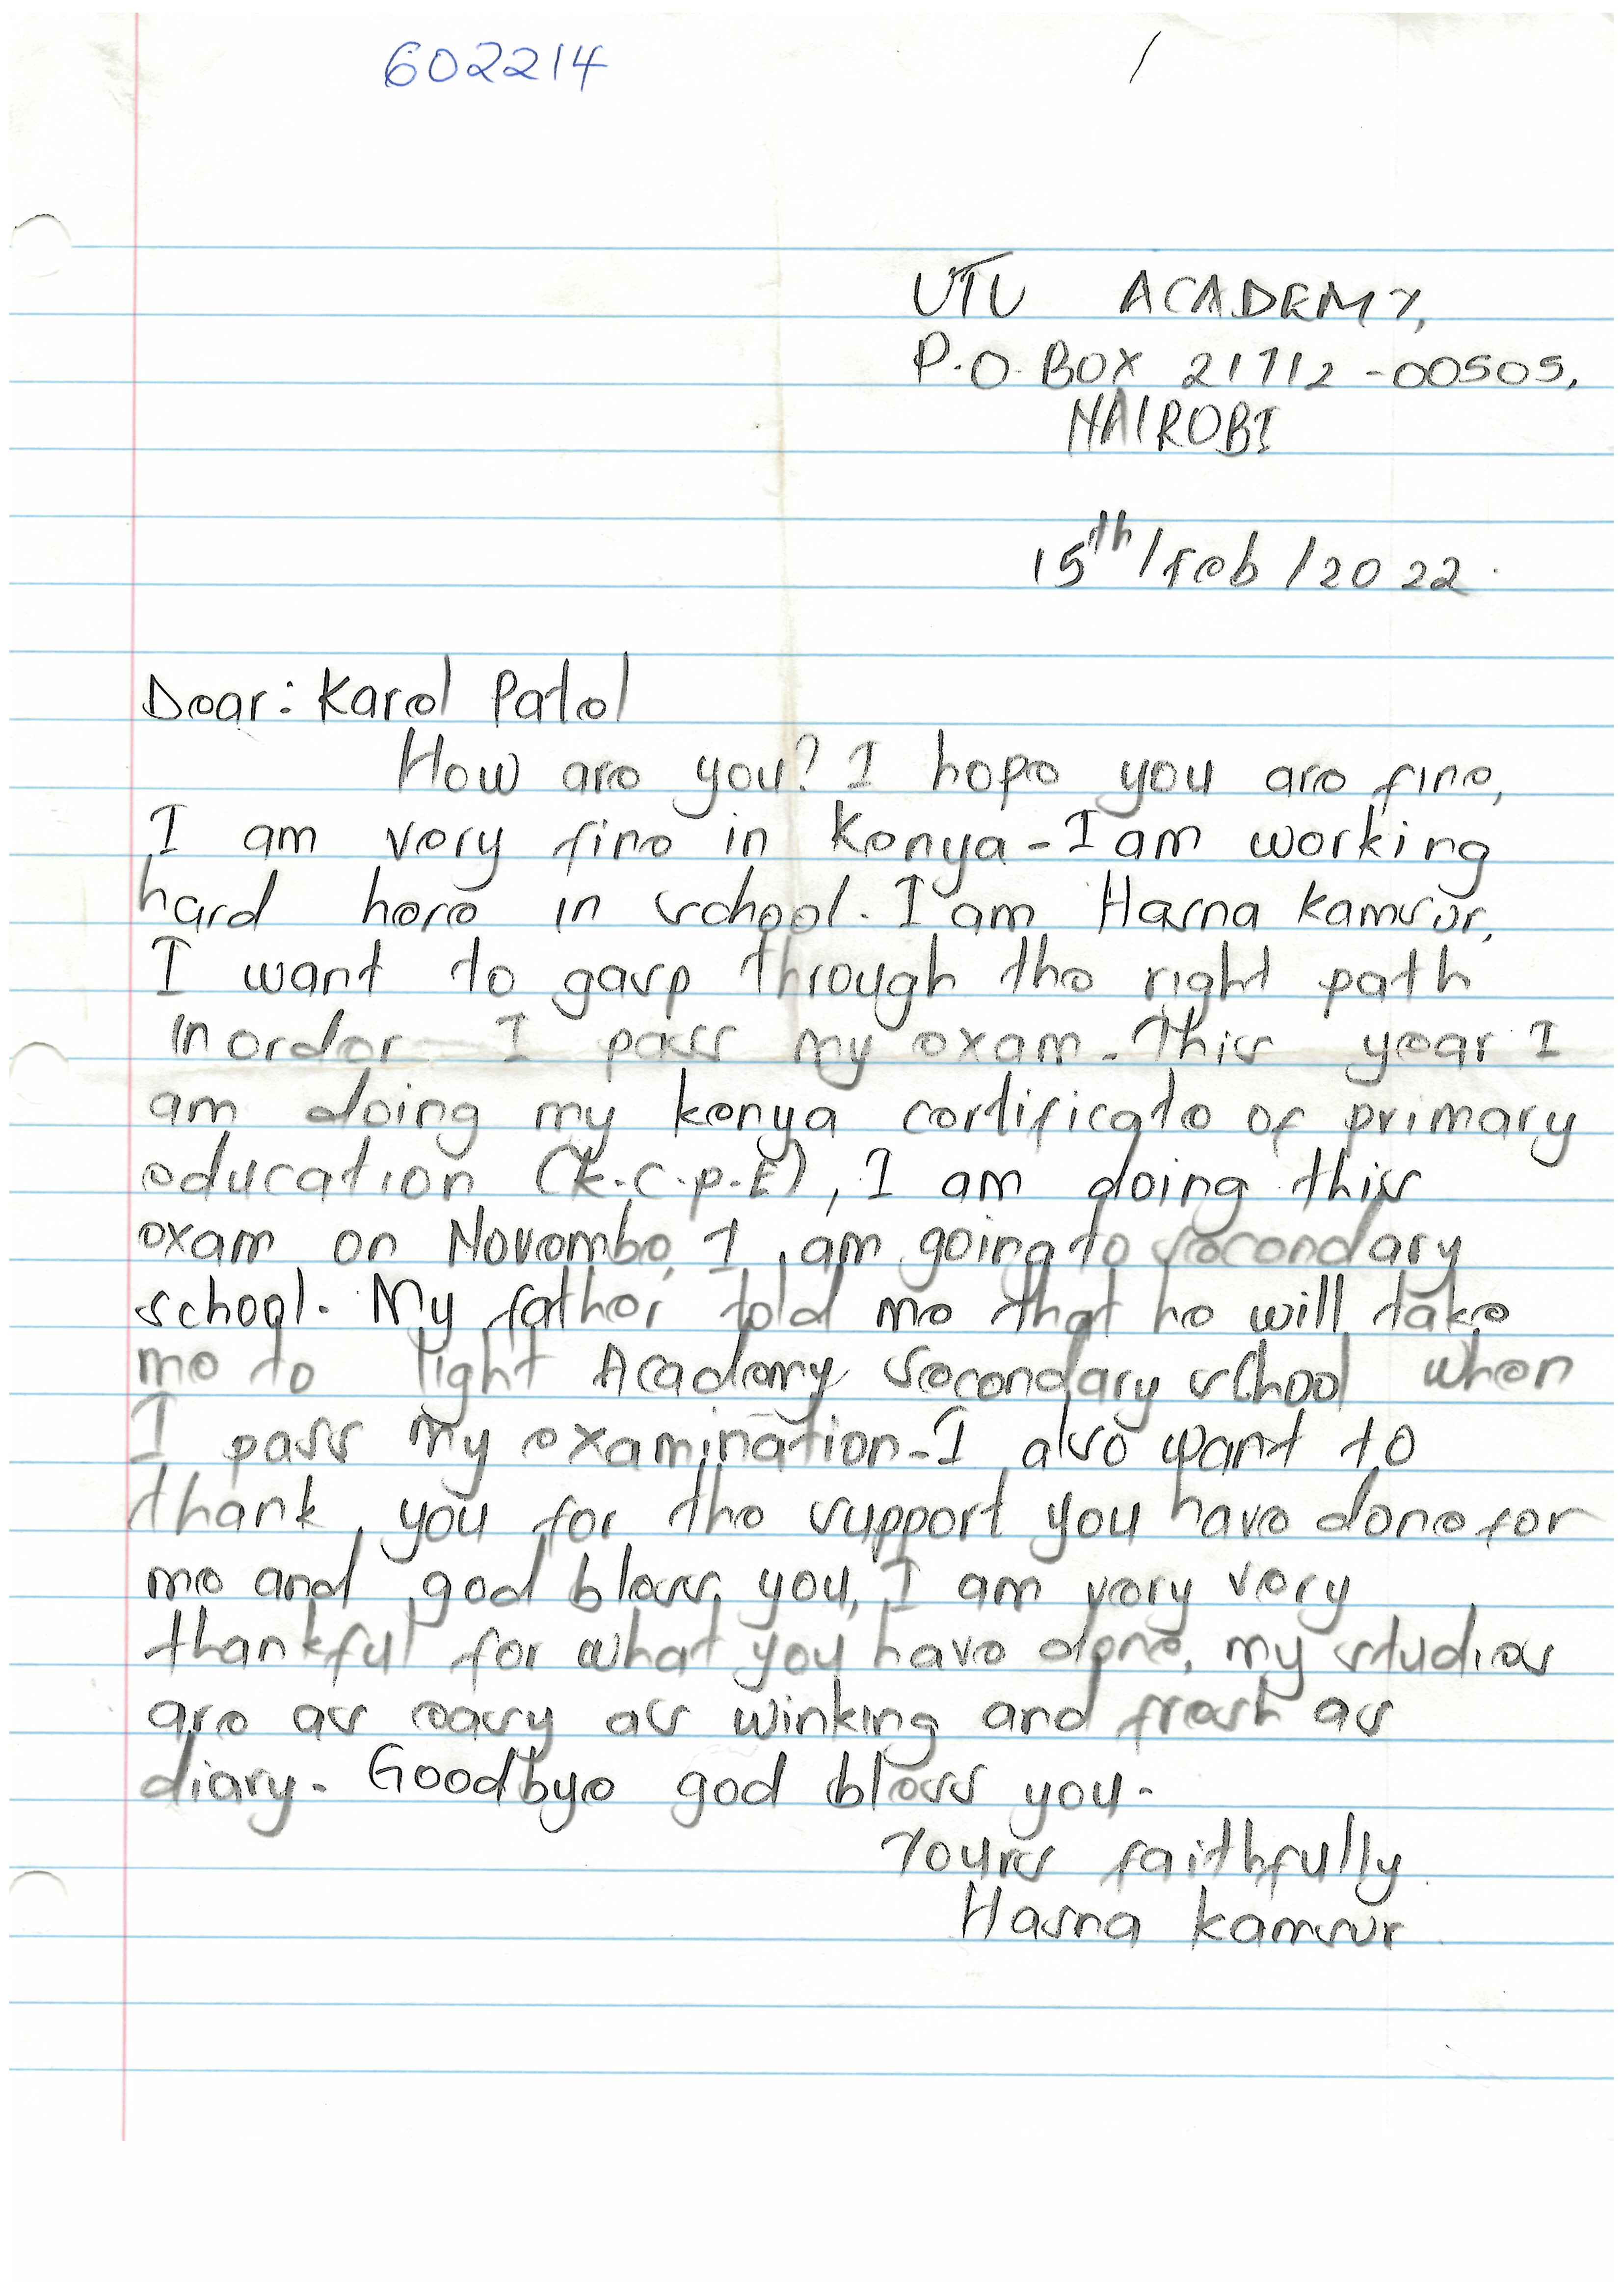 602214 /
UTU ACADEMY,
P.O. BOX 21712 -00505,
NAIROBI
15th/feb/2022.
Dear: Karel Patel
How are you? I hope you are fine,
I am very fine in Kenya - I am working
hard here in school. I am Hasna Kamsur,
I want to gasp through the right path
in order I pass my exam. This year I
am doing my kenya certificate of primary
education (k.c.p.E), I am doing this
exam on Novembe, I am going to secondary
school. My father told me that he will take
me to light Academy secondary school when
I pass my examination - I also want to
thank you for the support you have done for
me and god bless you, I am very very
thankful for what you have done, my studies
are as easy as winking and fresh as
diary. Goodbye god bless you.
Yours faithfully
Hasna kamsur